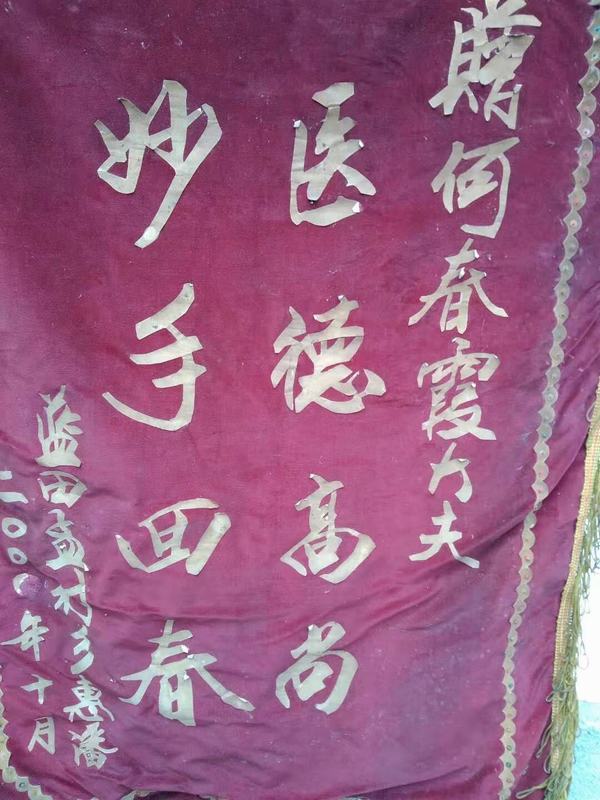 赠何春霞大夫
医德高尚
妙手回春
蓝田孟村乡惠潘
二〇〇〇年十月